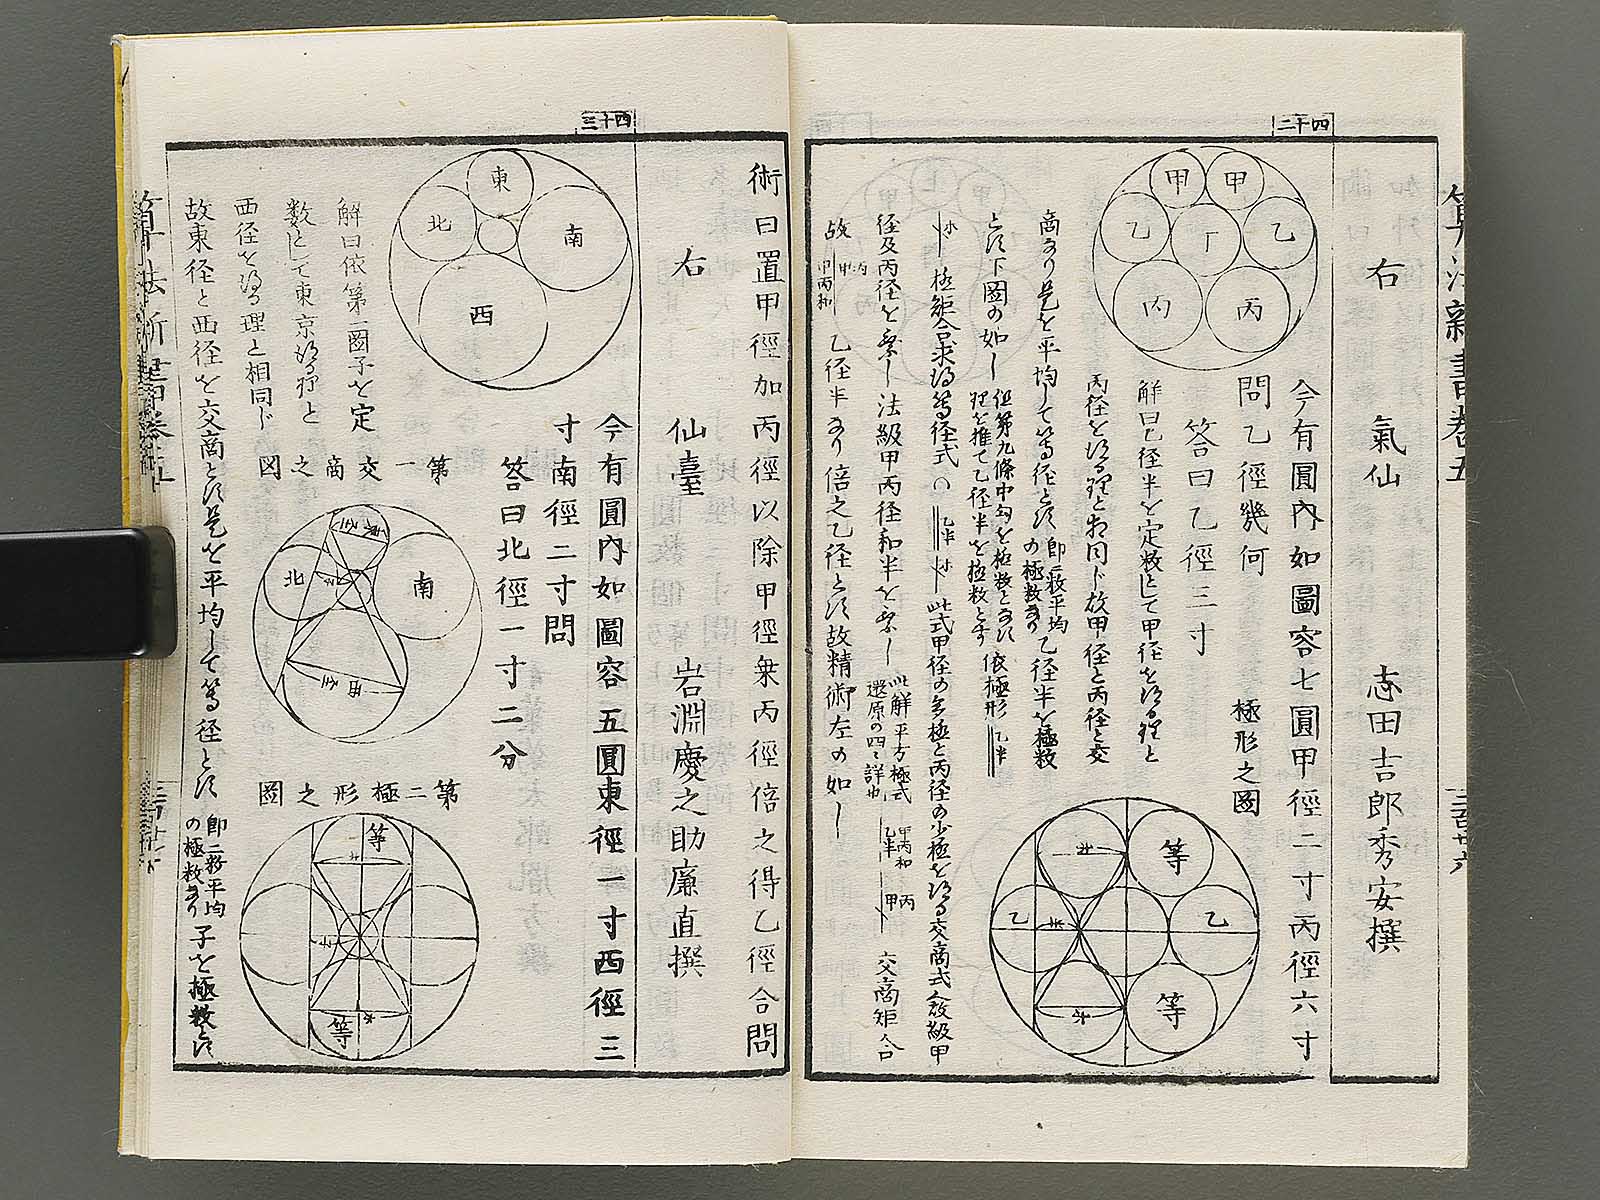 算法新書巻五
右 氣仙 志田吉郎秀安撰
四十二
今有圓内如圖容七圓甲徑二寸丙徑六寸
問乙徑幾何
答曰乙徑三寸
極形之圖
解曰乙径半を定数として甲径を得る理と
丙径を得る理と相同じ故甲径と丙径と交
商なり是を平均して等径とす
即二数平均の極数なり
乙径半を極数
とす下圖の如し
但第九條中勾を極数となす
理を推て乙径半を極数とす
依極形
乙半
極矩合求得等径式
此式甲径の多極と丙径の少極を得る交商式
級甲
径及丙径を乗し法級甲丙径和半を乗し
此解平方極式
還原の四に詳也
甲丙和
乙半
甲丙
交商矩合
故
甲丙和
甲丙
乙径半なり倍之乙径とす故精術左の如し
甲
甲
乙
丁
乙
丙
丙
等
乙
乙
等
術曰置甲徑加丙徑以除甲徑乗丙徑倍之得乙徑合問
右 仙臺 岩淵慶之助廉直撰
四十三
今有圓内如圖容五圓東徑一寸西徑三
寸南徑二寸問
答曰北徑一寸二分
東
北
南
西
解曰依第二圖子を定
数として東径得る理と
西径を得る理と相同じ
故東径と西径を交商とす是を平均して等径とす
即二数平均
の極数なり
子を極数とす
第一交商之図
北
南
第二極形之圖
等
等
算法新書巻五